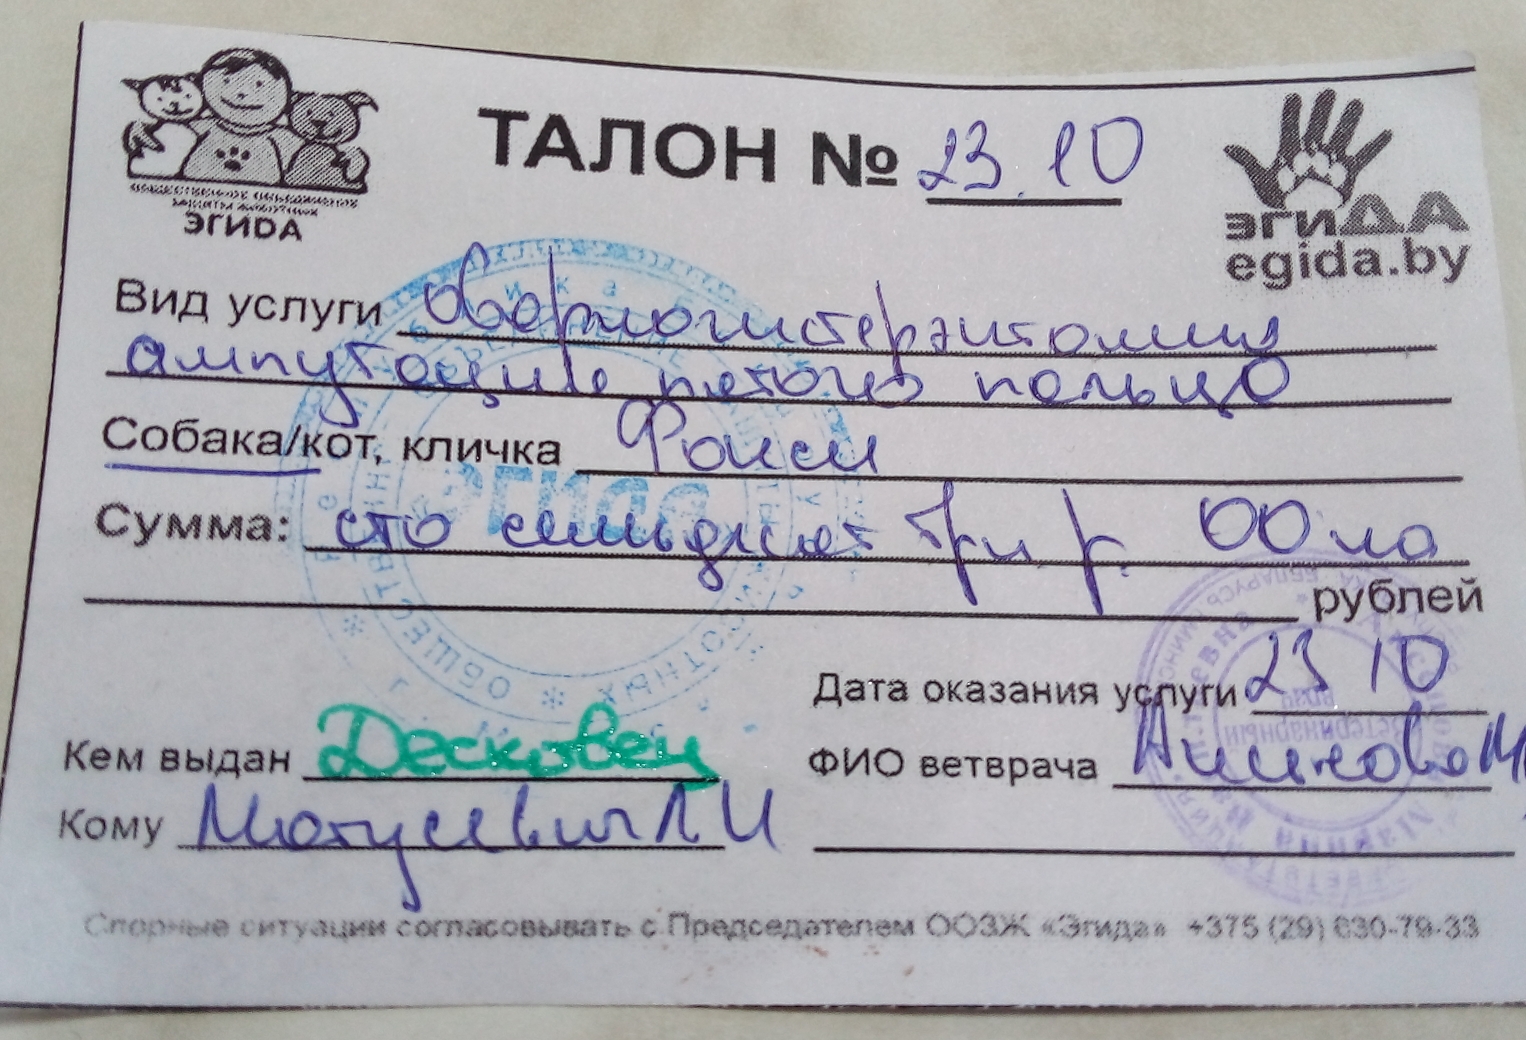 ТАЛОН № 23.10
ОБЩЕСТВЕННОЕ ОБЪЕДИНЕНИЕ
ЗАЩИТЫ ЖИВОТНЫХ
ЭГИДА
эгиДА
egida.by
Вид услуги овариогистерэктомия
ампутация пятого пальца
Собака/кот, кличка
Сумма: сто семьдесят три р. 00
рублей
Дата оказания услуги 23 10
Кем выдан Десковец
ФИО ветврача
Кому Матусевич Л И
Эгида
Спорные ситуации согласовывать с Председателем ООЗЖ «Эгида» +375 (29) 630-79-33